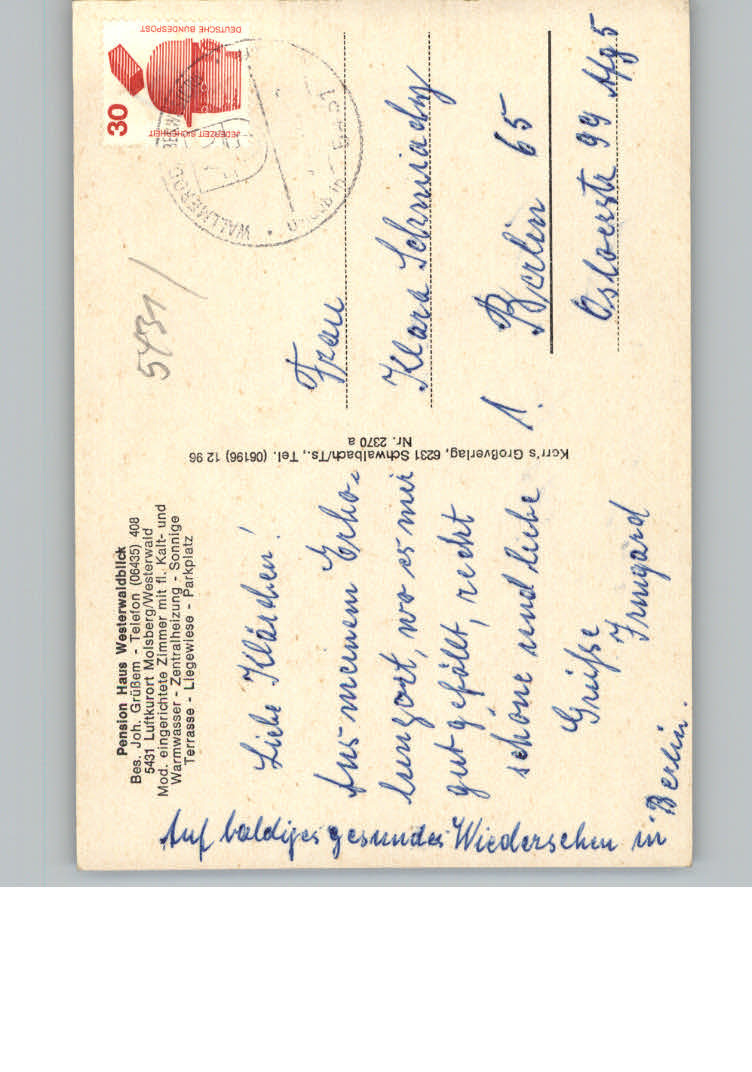 Pension Haus Westerwaldblick
Bes. Joh. Grüßem - Telefon (06435) 408
5431 Luftkurort Molsberg/Westerwald
Mod. eingerichtete Zimmer mit fl. Kalt- und
Warmwasser - Zentralheizung - Sonnige
Terrasse - Liegewiese - Parkplatz
Liebe Klärchen!
Aus meinem Erho-
lungsort, wo es mir
gut gefällt, recht
schöne und liebe
Grüße
Irmgard
Auf baldiges gesundes Wiedersehen in
Berlin.
Korr's Großverlag, 6231 Schwalbach/Ts., Tel. (06196) 12 96
Nr. 2370 a
5431
DEUTSCHE BUNDESPOST
30
JEDERZEIT SICHERHEIT
WALLMEROD
Frau
Klara Schmiady
1. Berlin 65
Osloerstr 99